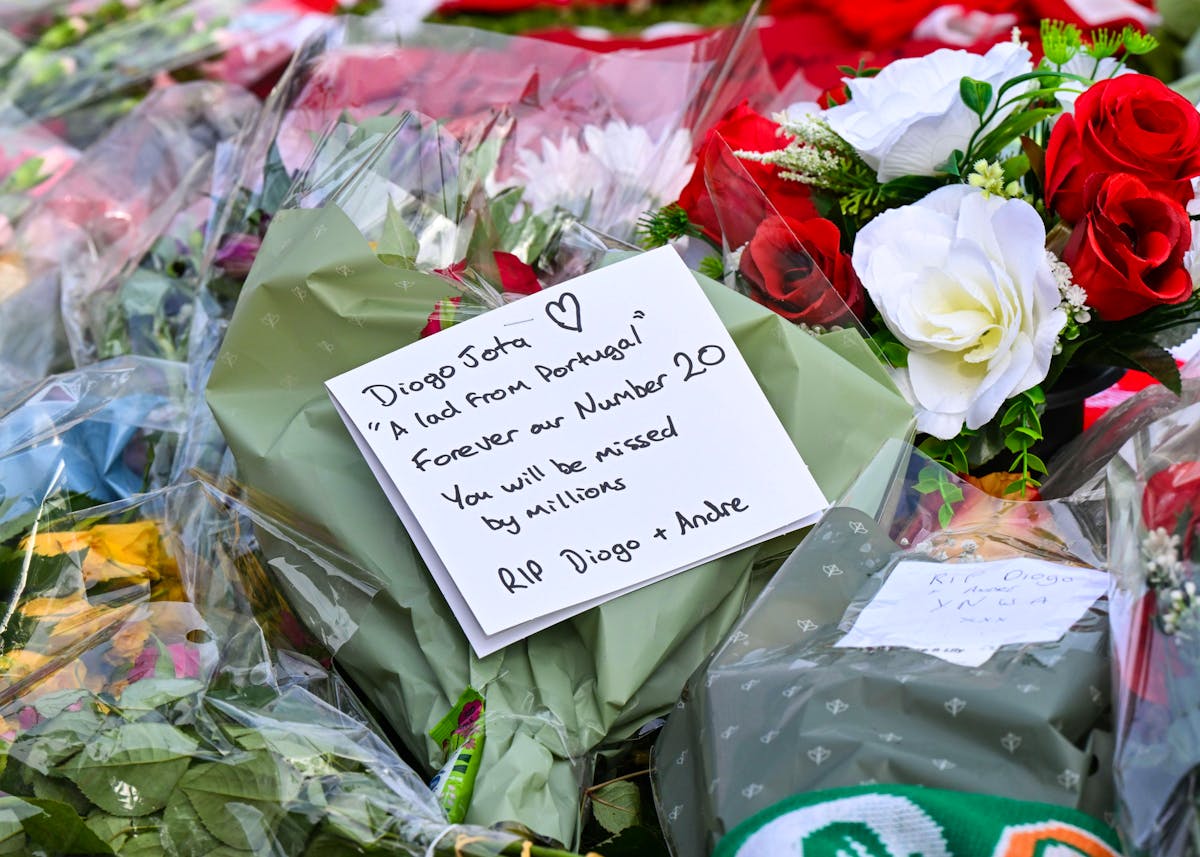 Diogo Jota ♡
"A lad from Portugal"
Forever our Number 20
You will be missed
by millions
RIP Diogo + Andre
RIP Diogo
YNWA
xxx